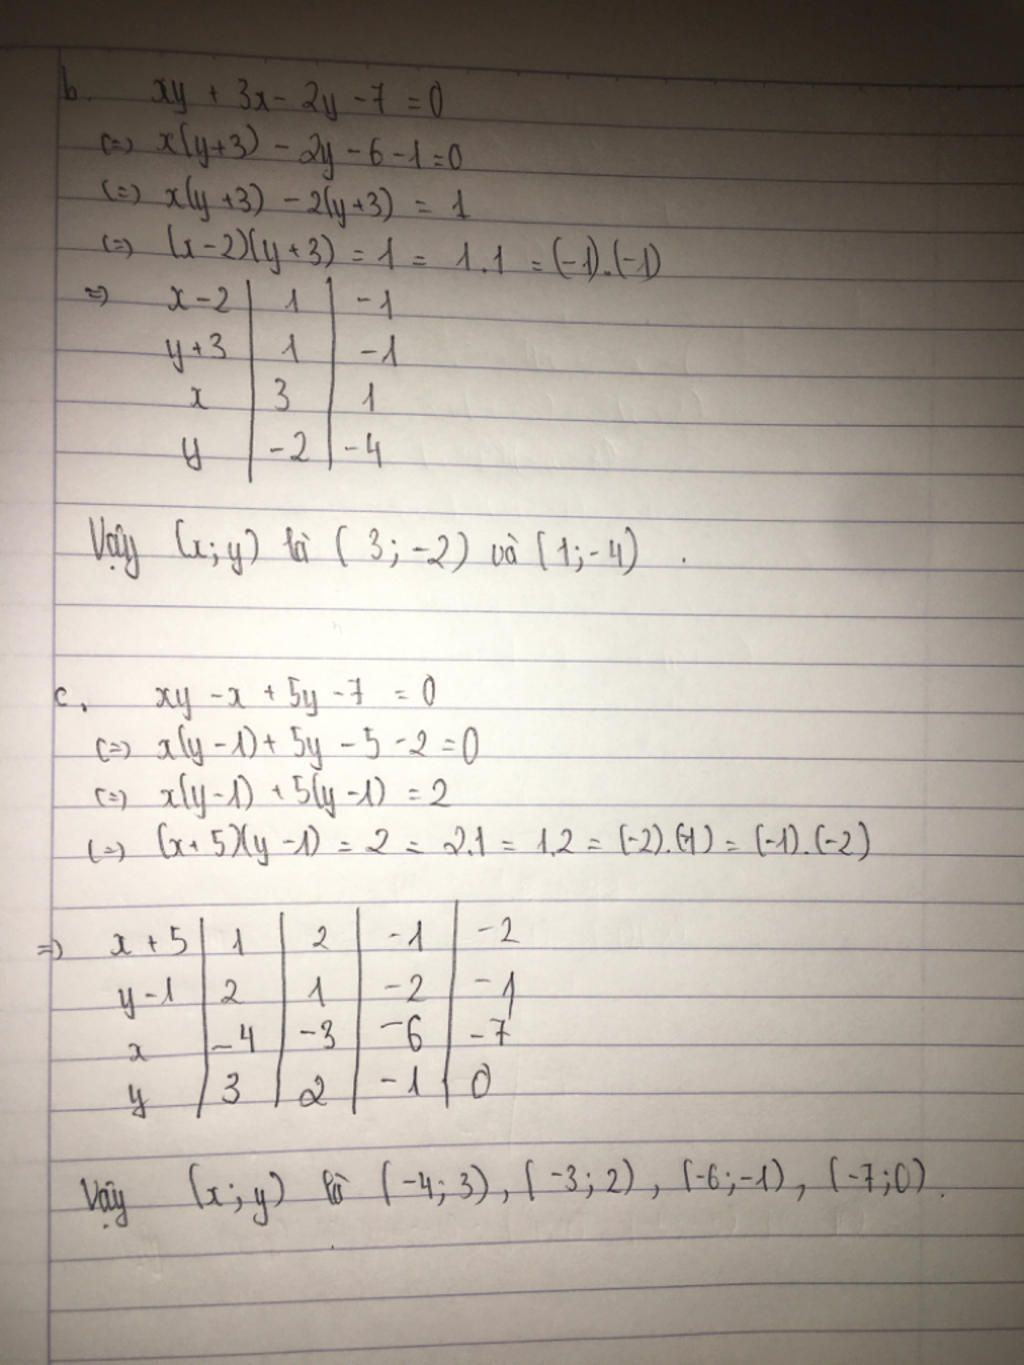 b. xy + 3x - 2y - 7 = 0
(=) x(y+3) - 2y - 6 - 1 = 0
(=) x(y+3) - 2(y+3) = 1
(=) (x-2)(y+3) = 1 = 1.1 = (-1).(-1)
=) x-2 | 1 | -1
y+3 | 1 | -1
x | 3 | 1
y | -2 | -4
Vậy (x;y) là (3;-2) và (1;-4).
c. xy - x + 5y - 7 = 0
(=) x(y-1) + 5y - 5 - 2 = 0
(=) x(y-1) + 5(y-1) = 2
(=) (x+5)(y-1) = 2 = 2.1 = 1.2 = (-2).(-1) = (-1).(-2)
=) x+5 | 1 | 2 | -1 | -2
y-1 | 2 | 1 | -2 | -1
x | -4 | -3 | -6 | -7
y | 3 | 2 | -1 | 0
Vậy (x;y) là (-4;3), (-3;2), (-6;-1), (-7;0).